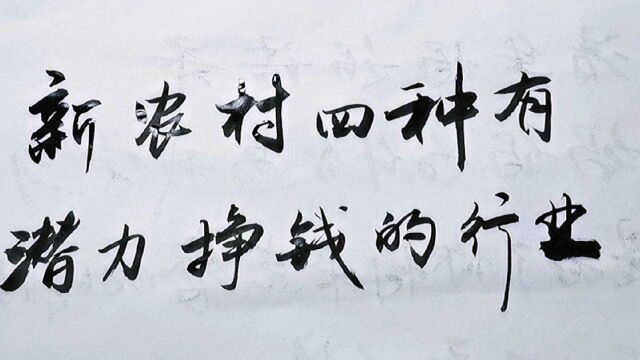 新农村四种有
潜力挣钱的行业